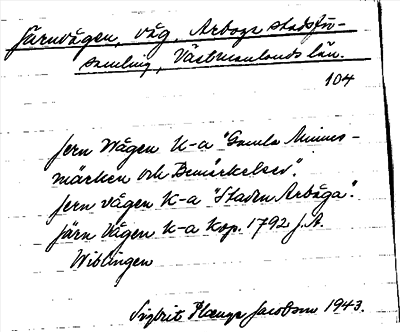 Järnvågen, våg. Arboga stadsför-
samling, Västmanlands län.
104
Jern Wågen K-a "Gamla Minnes-
märken och Bemärkelser".
Jern vågen K-a "Staden Arbåga".
Järn Vågen K-a Kop. 1792 J.A.
Wiblingen
Sigbrit Plænge Jacobson 1943.